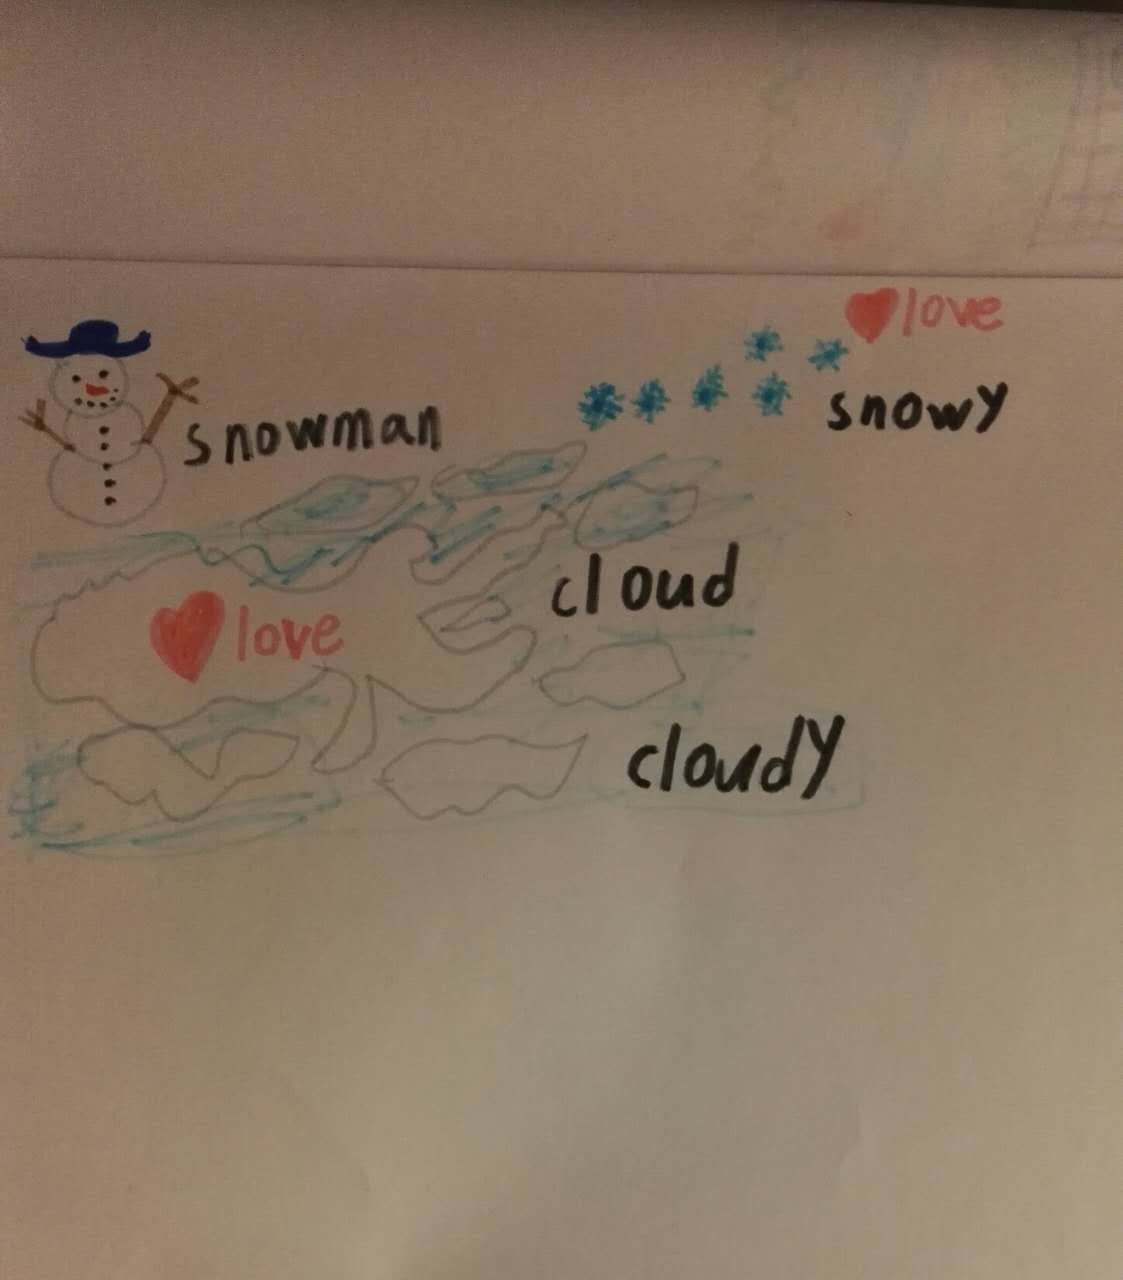 love
snowy
snowman
cloud
love
cloudy